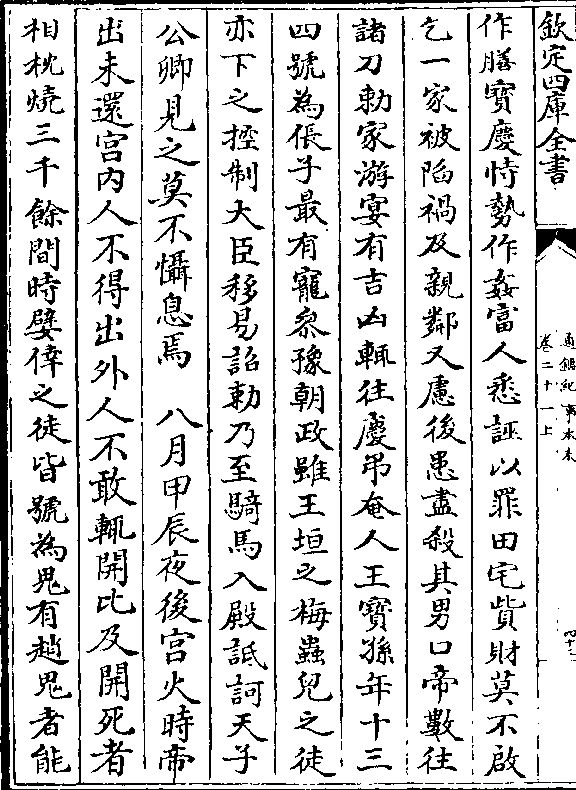 欽定四庫全書
通鑑紀事本末
卷二十一上
作膳寶慶恃勢作姦富人悉誣以罪田宅貲財莫不啟
乞一家被陷禍及親鄰又慮後患盡殺其男口帝數往
諸刀勅家游宴有吉凶輒往慶弔奄人王寶孫年十三
四號為倀子最有寵叅豫朝政雖王垣之梅蟲兒之徒
亦下之控制大臣移易詔勅乃至騎馬入殿詆訶天子
公卿見之莫不懾息焉　八月甲辰夜後宮火時帝
出未還宮内人不得出外人不敢輒開比及開死者
相枕燒三千餘間時嬖倖之徒皆號為鬼有趙鬼者能